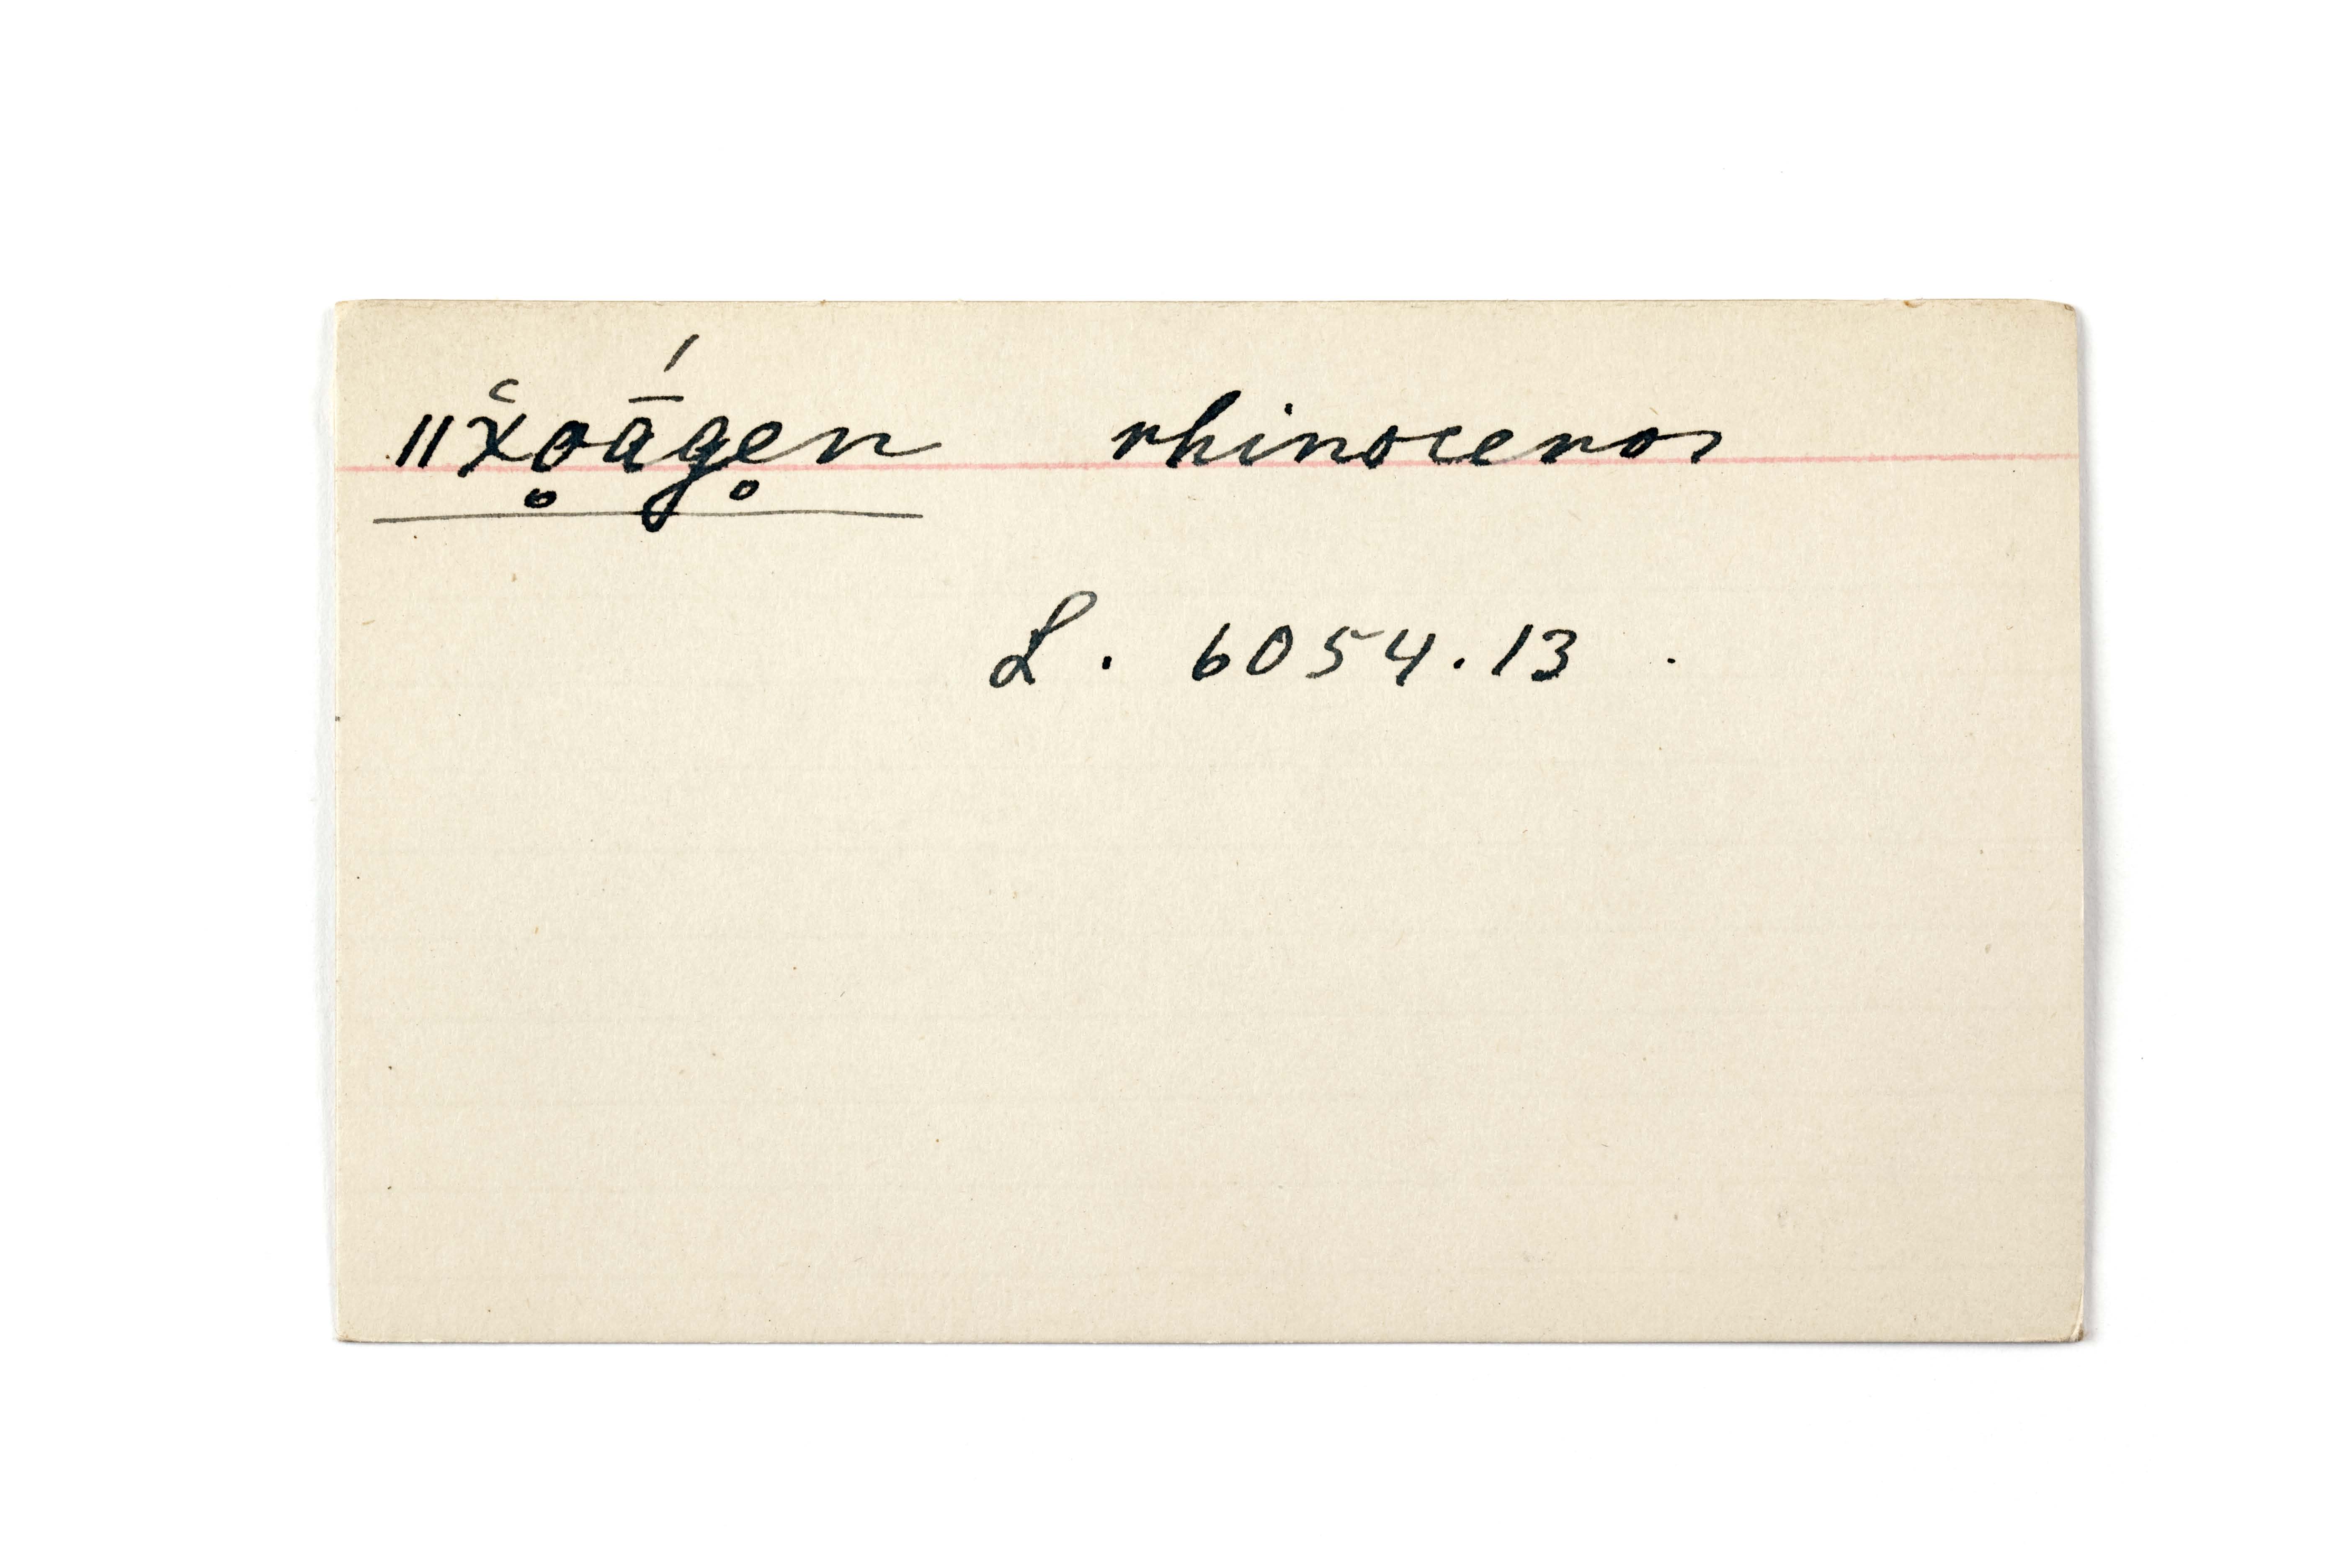 ǁx̆o̥ā́ge̥n rhinoceros
L. 6054.13.